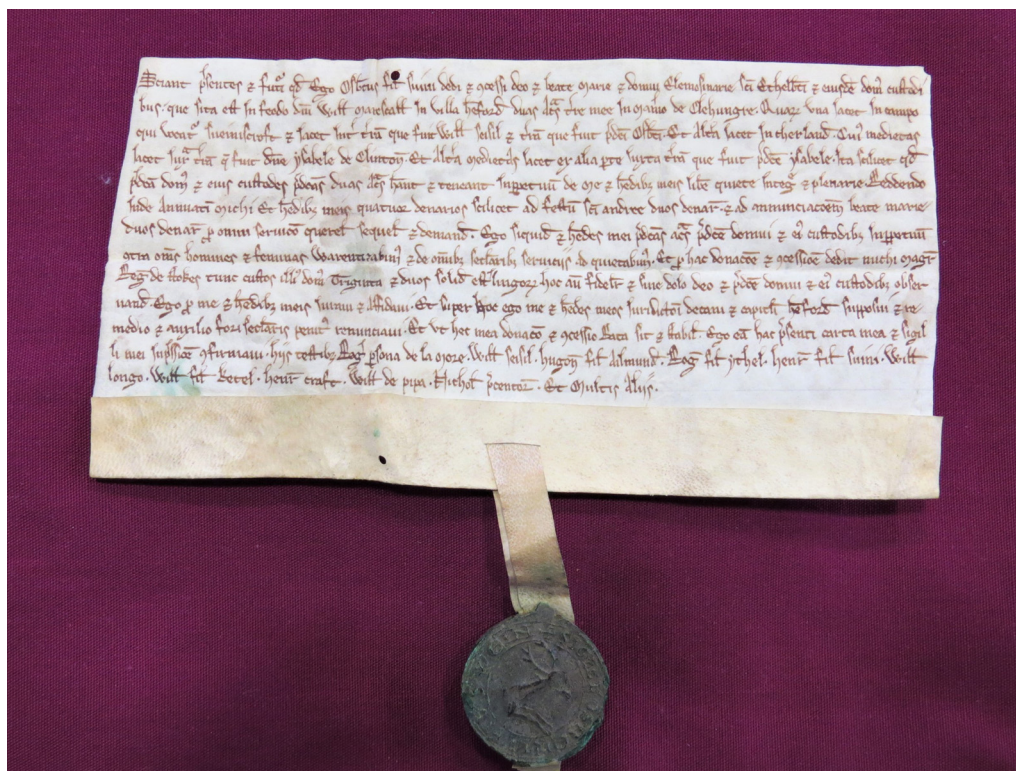 Sciant p̄sentes ⁊ fut̉i qd̄ Ego Osb̄tus fil̄ suini dedi ⁊ ɔcessi deo ⁊ beate marie ⁊ domui Elemosinarie sc̄i Ethelb̄ti ⁊ eiusdē dom̉ custodi
bus. que sita est in feodo dn̄i Will̄ marescall̄ In villa h̄eford̄ duas ac̄s t̄re mee in Manɔ de Clehungre. Quaꝝ una Iacet In campo
qui uocat̉ suein ⁊ Iacet int̉ t̄ram que fuit Will̄ seisil ⁊ t̄ram que fuit p̄dc̄i Osb̄ti. Et Alt̄a Iacet In cherland. Cuỉ medietas
Iacet Iux̉ t̄ram q̄ fuit dn̄e ysabele de Clinton̄. Et Alt̄a medietas Iacet ex alia p̄te Iuxta t̄ram que fuit p̄dc̄e ysabele. Ita scilicet qd̄
p̄dc̄a dom̉ ⁊ eius custodes p̄dc̄as duas ac̄s h̄ant ⁊ teneant Inp̄petuū de me ⁊ h̄edibꝫ meis lib̄e quiete Integ̉ ⁊ plenarie. Reddendo
Inde Annuatī michi Et h̄edibꝫ meis quatuor denarios scilicet ad festū sc̄i andree duos denar̄. ⁊ ad annunciac̄oem beate marie
duos denar̄ p̄ omni seruic̄o querel̄ sequel̄ ⁊ demand̄. Ego siquid̄ ⁊ h̄edes mei p̄dc̄as ac̄s p̄dc̄e domui ⁊ eỉ custodibꝫ Inp̄petuū
ɔtra om̄s homines ⁊ feminas Warentizabim̉ ⁊ de om̄ibꝫ sec̄larībꝫ seruiciis adquietabim̉. Et p̄ hac donac̄oe ⁊ ɔcessiōe dedit michi magr̄
Reg̉ de stokes tunc custos ill̉ dom̉ Triginta ⁊ duos solid̄ est̉lingoꝝ hoc aū fidelit̉ ⁊ sine dolo deo ⁊ p̄dc̄e domui ⁊ eỉ custodibꝫ obser
uand̄. Ego p̄ me ⁊ h̄edibꝫ meis Iuraui ⁊ Affidaui. Et super hoc ego me ⁊ h̄edes meos Iurisdictōi decani ⁊ capituli h̄eford̄ supposui ⁊ re
medio ⁊ auxilio fori sec̄laris penit̉ renunciaui. Et Vt hec mea donac̄o ⁊ ɔcessio Rata sit ⁊ stabil̄. Ego eā hac p̄senti carta mea ⁊ sigil
li mei Inp̄ssiōe ɔfirmaui. hijs testibꝫ Rog̉ p̄sona de la more. Will̄ seisil. hugon̄ fil̄ Ailmund̄. Reg̉ fil̄ ythel. henr̄ fil̄ suini. Will̄
longo. Will̄ fil̄ ketel. henr̄ craft. Will̄ de pipa. Nichol̄ p̄centor̄. Et Multis Aliis.